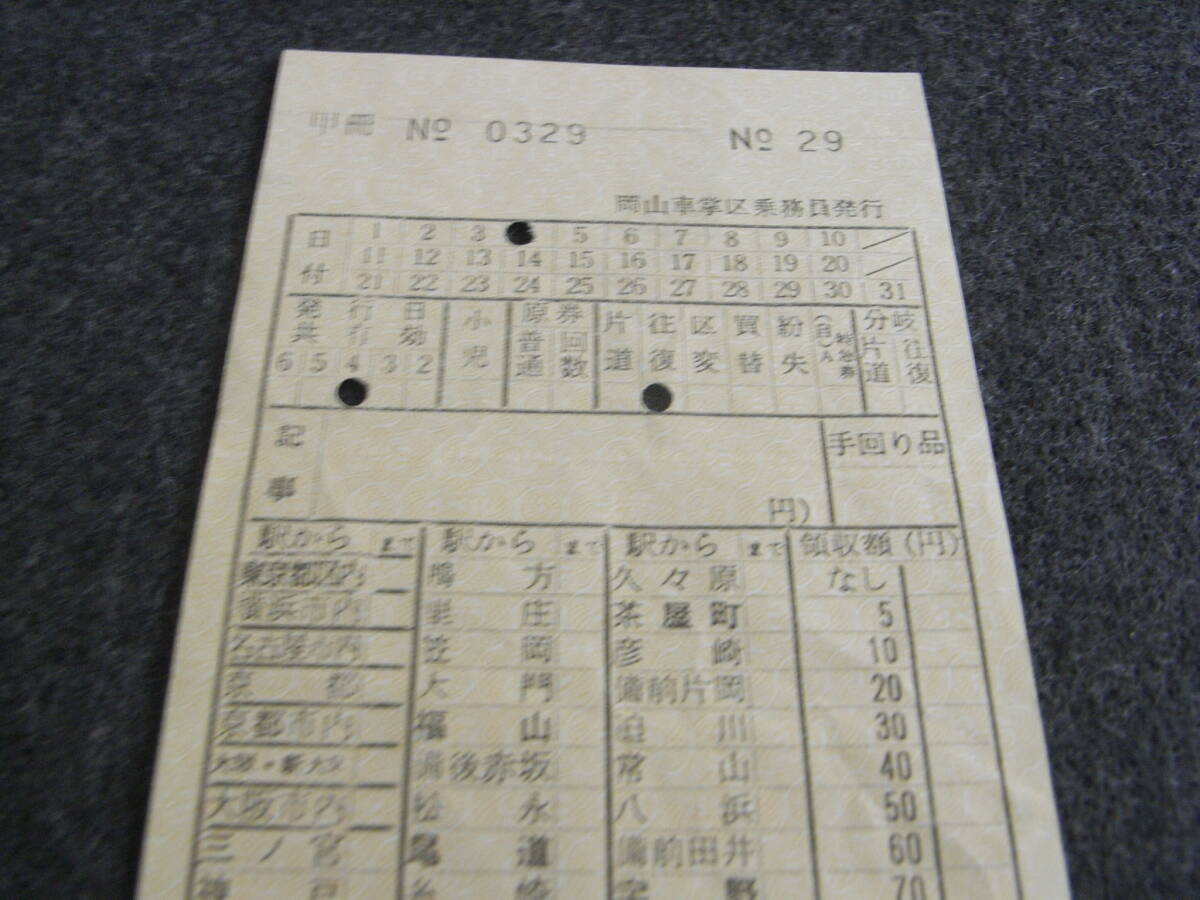 甲冊 № 0329 № 29
岡山車掌区乗務員発行
日付
1 2 3 5 6 7 8 9 10
11 12 13 14 15 16 17 18 19 20
21 22 23 24 25 26 27 28 29 30 31
発行日共有効 6 5 4 3 2
小児
原券 普通 回数
片道
往復
区変
買替
紛失
分岐 片道 往復
記事
円)
手回り品
駅から まで 駅から まで 駅から まで 領収額(円)
東京都区内 鴨方 久々原 なし
横浜市内 里庄 茶屋町 5
名古屋市内 笠岡 彦崎 10
京都 大門 備前片岡 20
京都市内 福山 迫川 30
大阪・新大阪 備後赤坂 常山 40
大阪市内 松永 八浜 50
三ノ宮 尾道 備前田井 60
神戸 糸崎 宇野 70